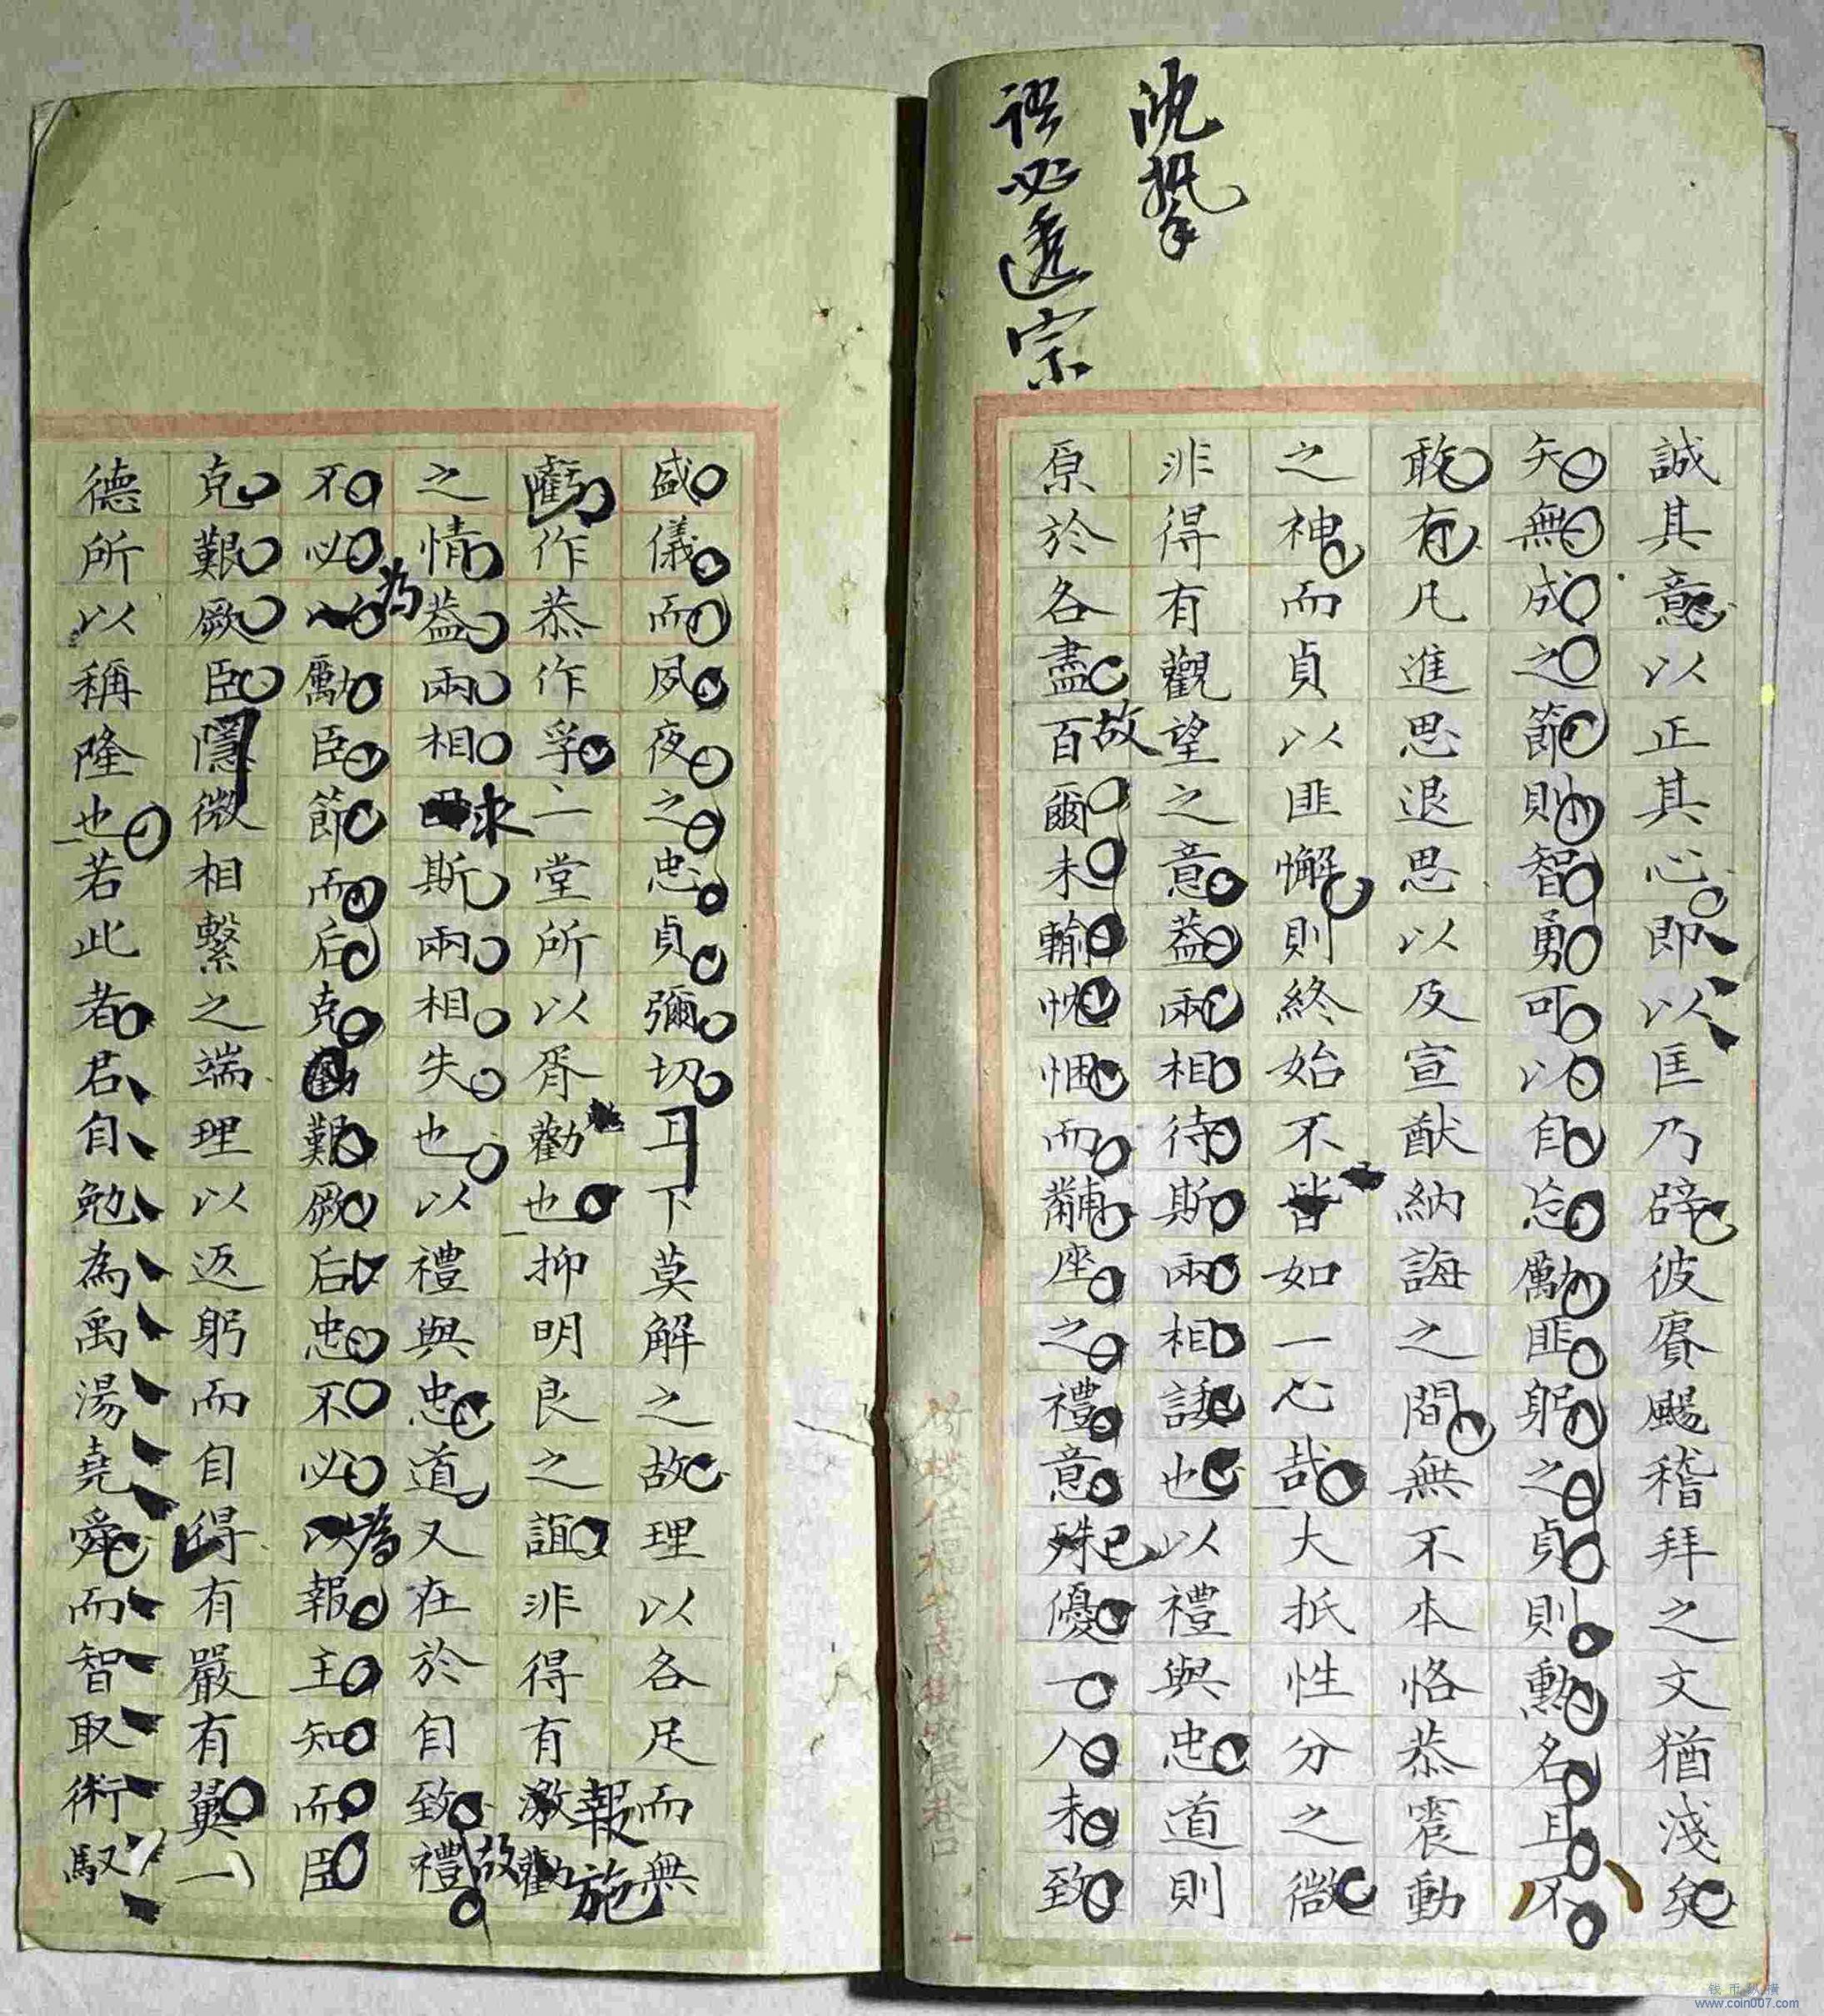 沈摯
語必透宗
誠其意以正其心即以匡乃辟彼賡颺稽拜之文猶淺矣
矢無成之節則智勇可以自忘勵匪躬之貞則勳名且不
敢有凡進思退思以及宣猷納誨之間無不本恪恭震動
之神而貞以匪懈則終始不皆如一心哉大抵性分之微
非得有觀望之意蓋兩相待斯兩相諉也以禮與忠道則
原於各盡故百爾未輸忱悃而黼座之禮意殊已優一人未致
盛儀而夙夜之忠貞彌切上下莫解之故理以各足而無
虧作恭作孚一堂所以胥勸也抑明良之誼非得有激勸報施
之情蓋兩相求斯兩相失也以禮與忠道又在於自致故禮
不必以為勵臣節而后克艱厥后忠不必以為報主知而臣
克艱厥臣隱微相繫之端理以返躬而自得有嚴有翼一
德所以稱隆也若此者君自勉為禹湯堯舜而智取術馭
钱币纵横
www.coin007.com